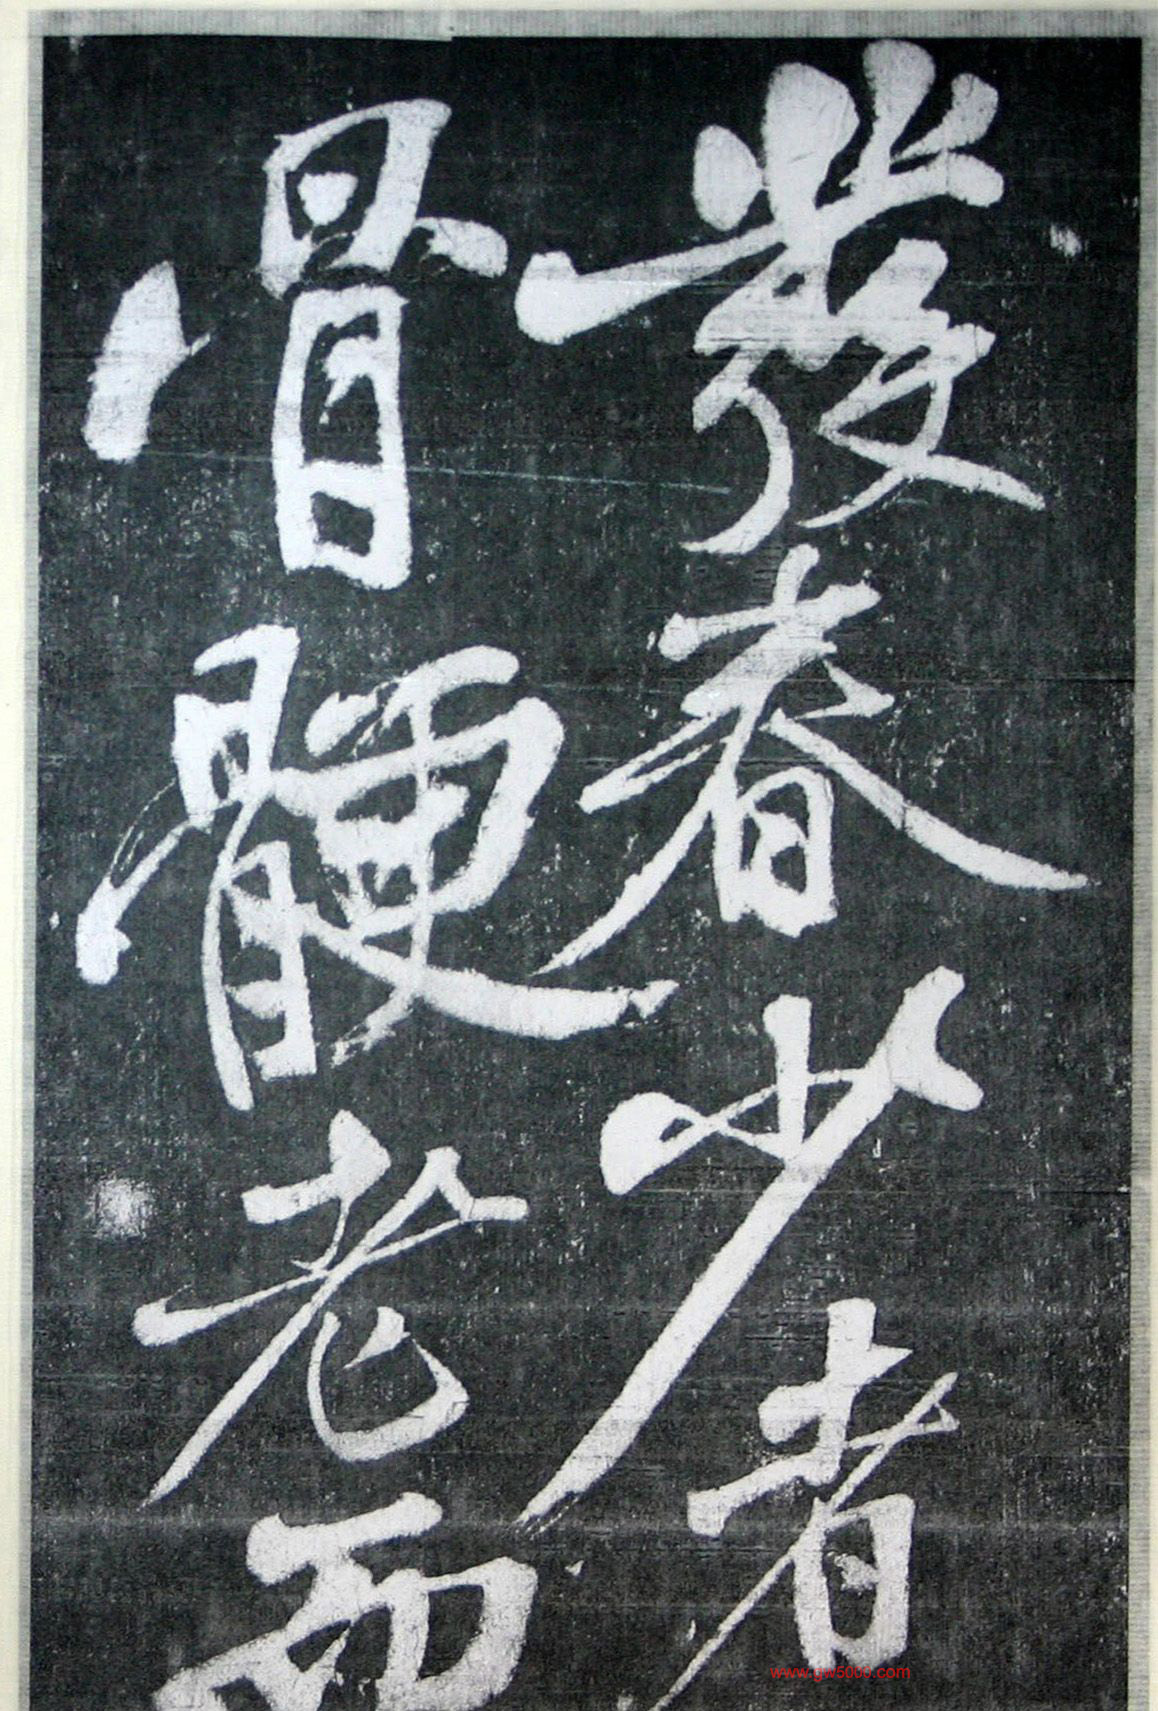 發春少者
骨骾老而
www.gw5000.com